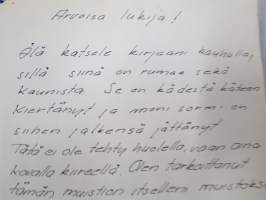 Arvoisa lukija!
Älä katsele kirjaani kauhulla,
sillä siinä on rumaa sekä
kaunista. Se on kädestä käteen
kiertänyt ja moni sormi on
siihen jälkensä jättänyt
Tätä ei ole tehty huolella, vaan aina
kovalla kiireellä. Olen tarkoittanut
tämän muistion itselleni muistoksi